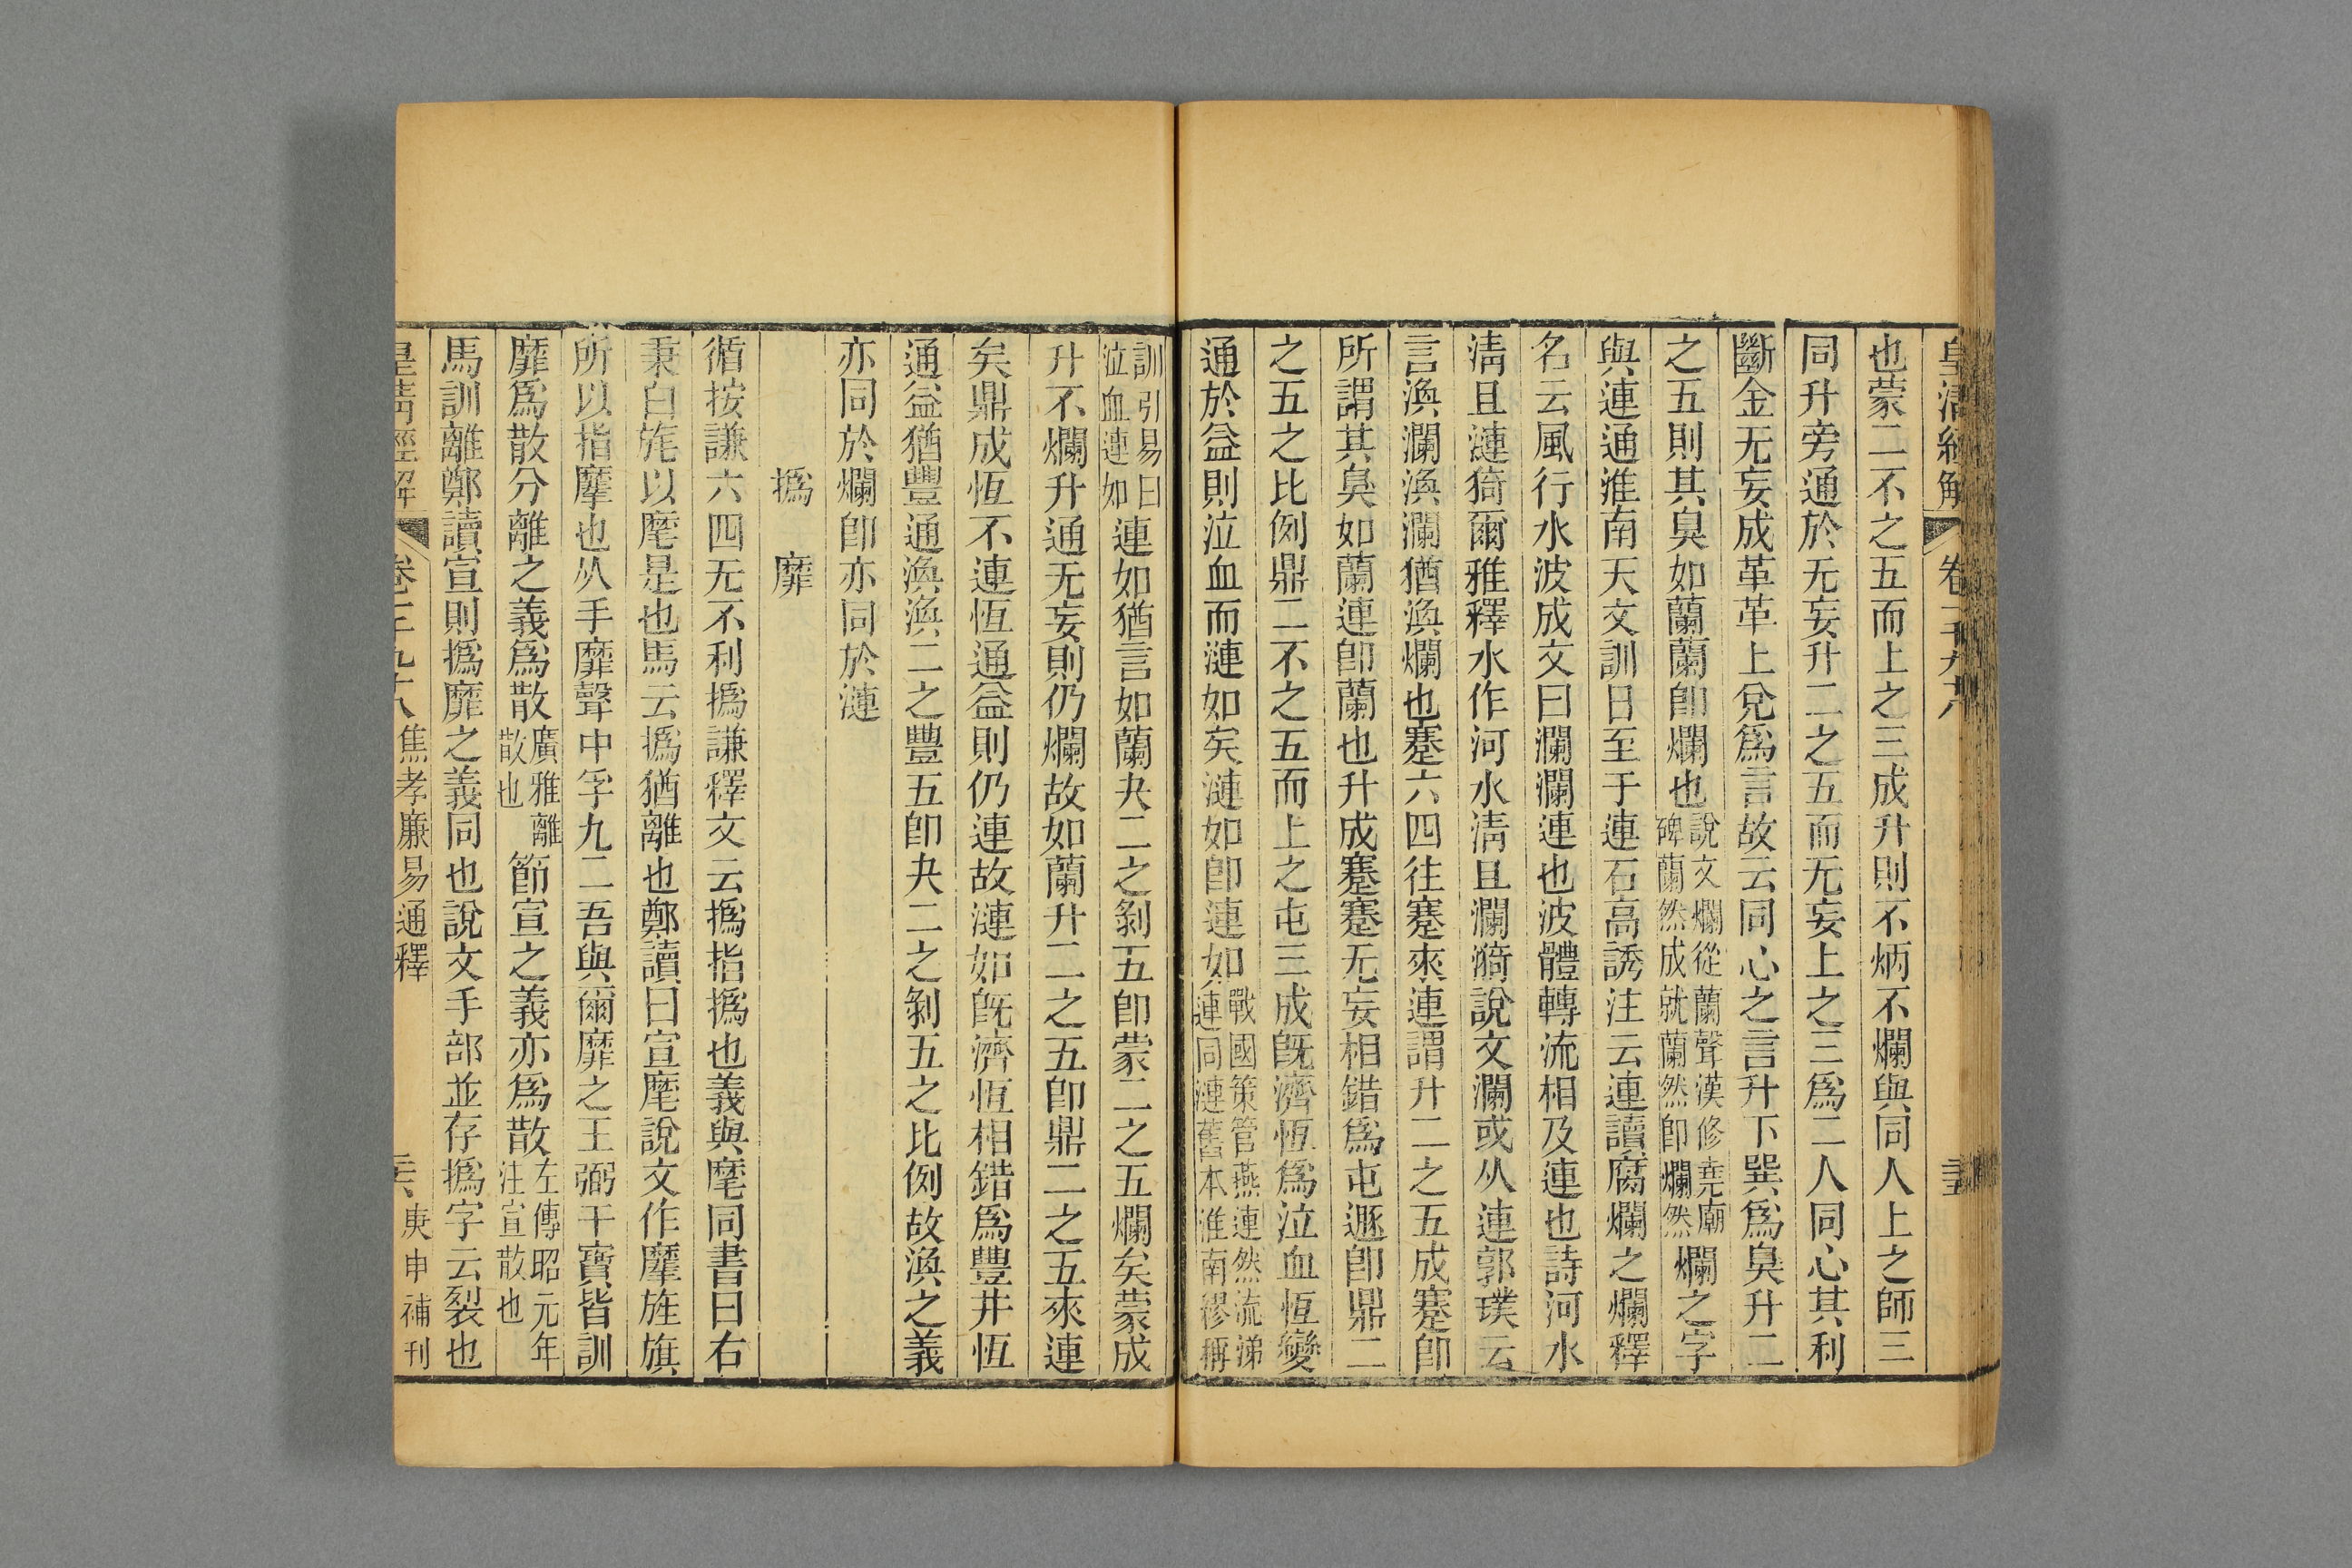 皇清經解 卷一千九十八
也蒙二不之五而上之三成升則不炳不爛與同人上之師三
同升旁通於无妄升二之五而无妄上之三爲二人同心其利
斷金无妄成革革上兌爲言故云同心之言升下巽爲臭升二
之五則其臭如蘭蘭卽爛也說文爛從蘭聲漢修堯廟碑蘭然成就蘭然卽爛然爛之字
與連通淮南天文訓日至于連石高誘注云連讀腐爛之爛釋
名云風行水波成文曰瀾瀾連也波體轉流相及連也詩河水
淸且漣猗爾雅釋水作河水淸且瀾漪說文瀾或从連郭璞云
言渙瀾渙瀾猶渙爛也蹇六四往蹇來連謂升二之五成蹇卽
所謂其臭如蘭連卽蘭也升成蹇蹇无妄相錯爲屯遯卽鼎二
之五之比例鼎二不之五而上之屯三成旣濟恆爲泣血恆變
通於益則泣血而漣如矣漣如卽連如戰國策管燕連然流涕連同漣舊本淮南繆稱
訓引易曰泣血連如連如猶言如蘭夬二之剝五卽蒙二之五爛矣蒙成
升不爛升通无妄則仍爛故如蘭升二之五卽鼎二之五來連
矣鼎成恆不連恆通益則仍連故漣如旣濟恆相錯爲豐井恆
通益猶豐通渙渙二之豐五卽夬二之剝五之比例故渙之義
亦同於爛卽亦同於漣
撝 靡
循按謙六四无不利撝謙釋文云撝指撝也義與麾同書曰右
秉白旄以麾是也馬云撝猶離也鄭讀曰宣麾說文作摩旌旗
所以指摩也从手靡聲中孚九二吾與爾靡之王弼干寶皆訓
靡爲散分離之義爲散廣雅離散也節宣之義亦爲散左傳昭元年注宣散也
馬訓離鄭讀宣則撝靡之義同也說文手部並存撝字云裂也
皇清經解 卷一千九十八 焦孝廉易通釋 庚申補刊